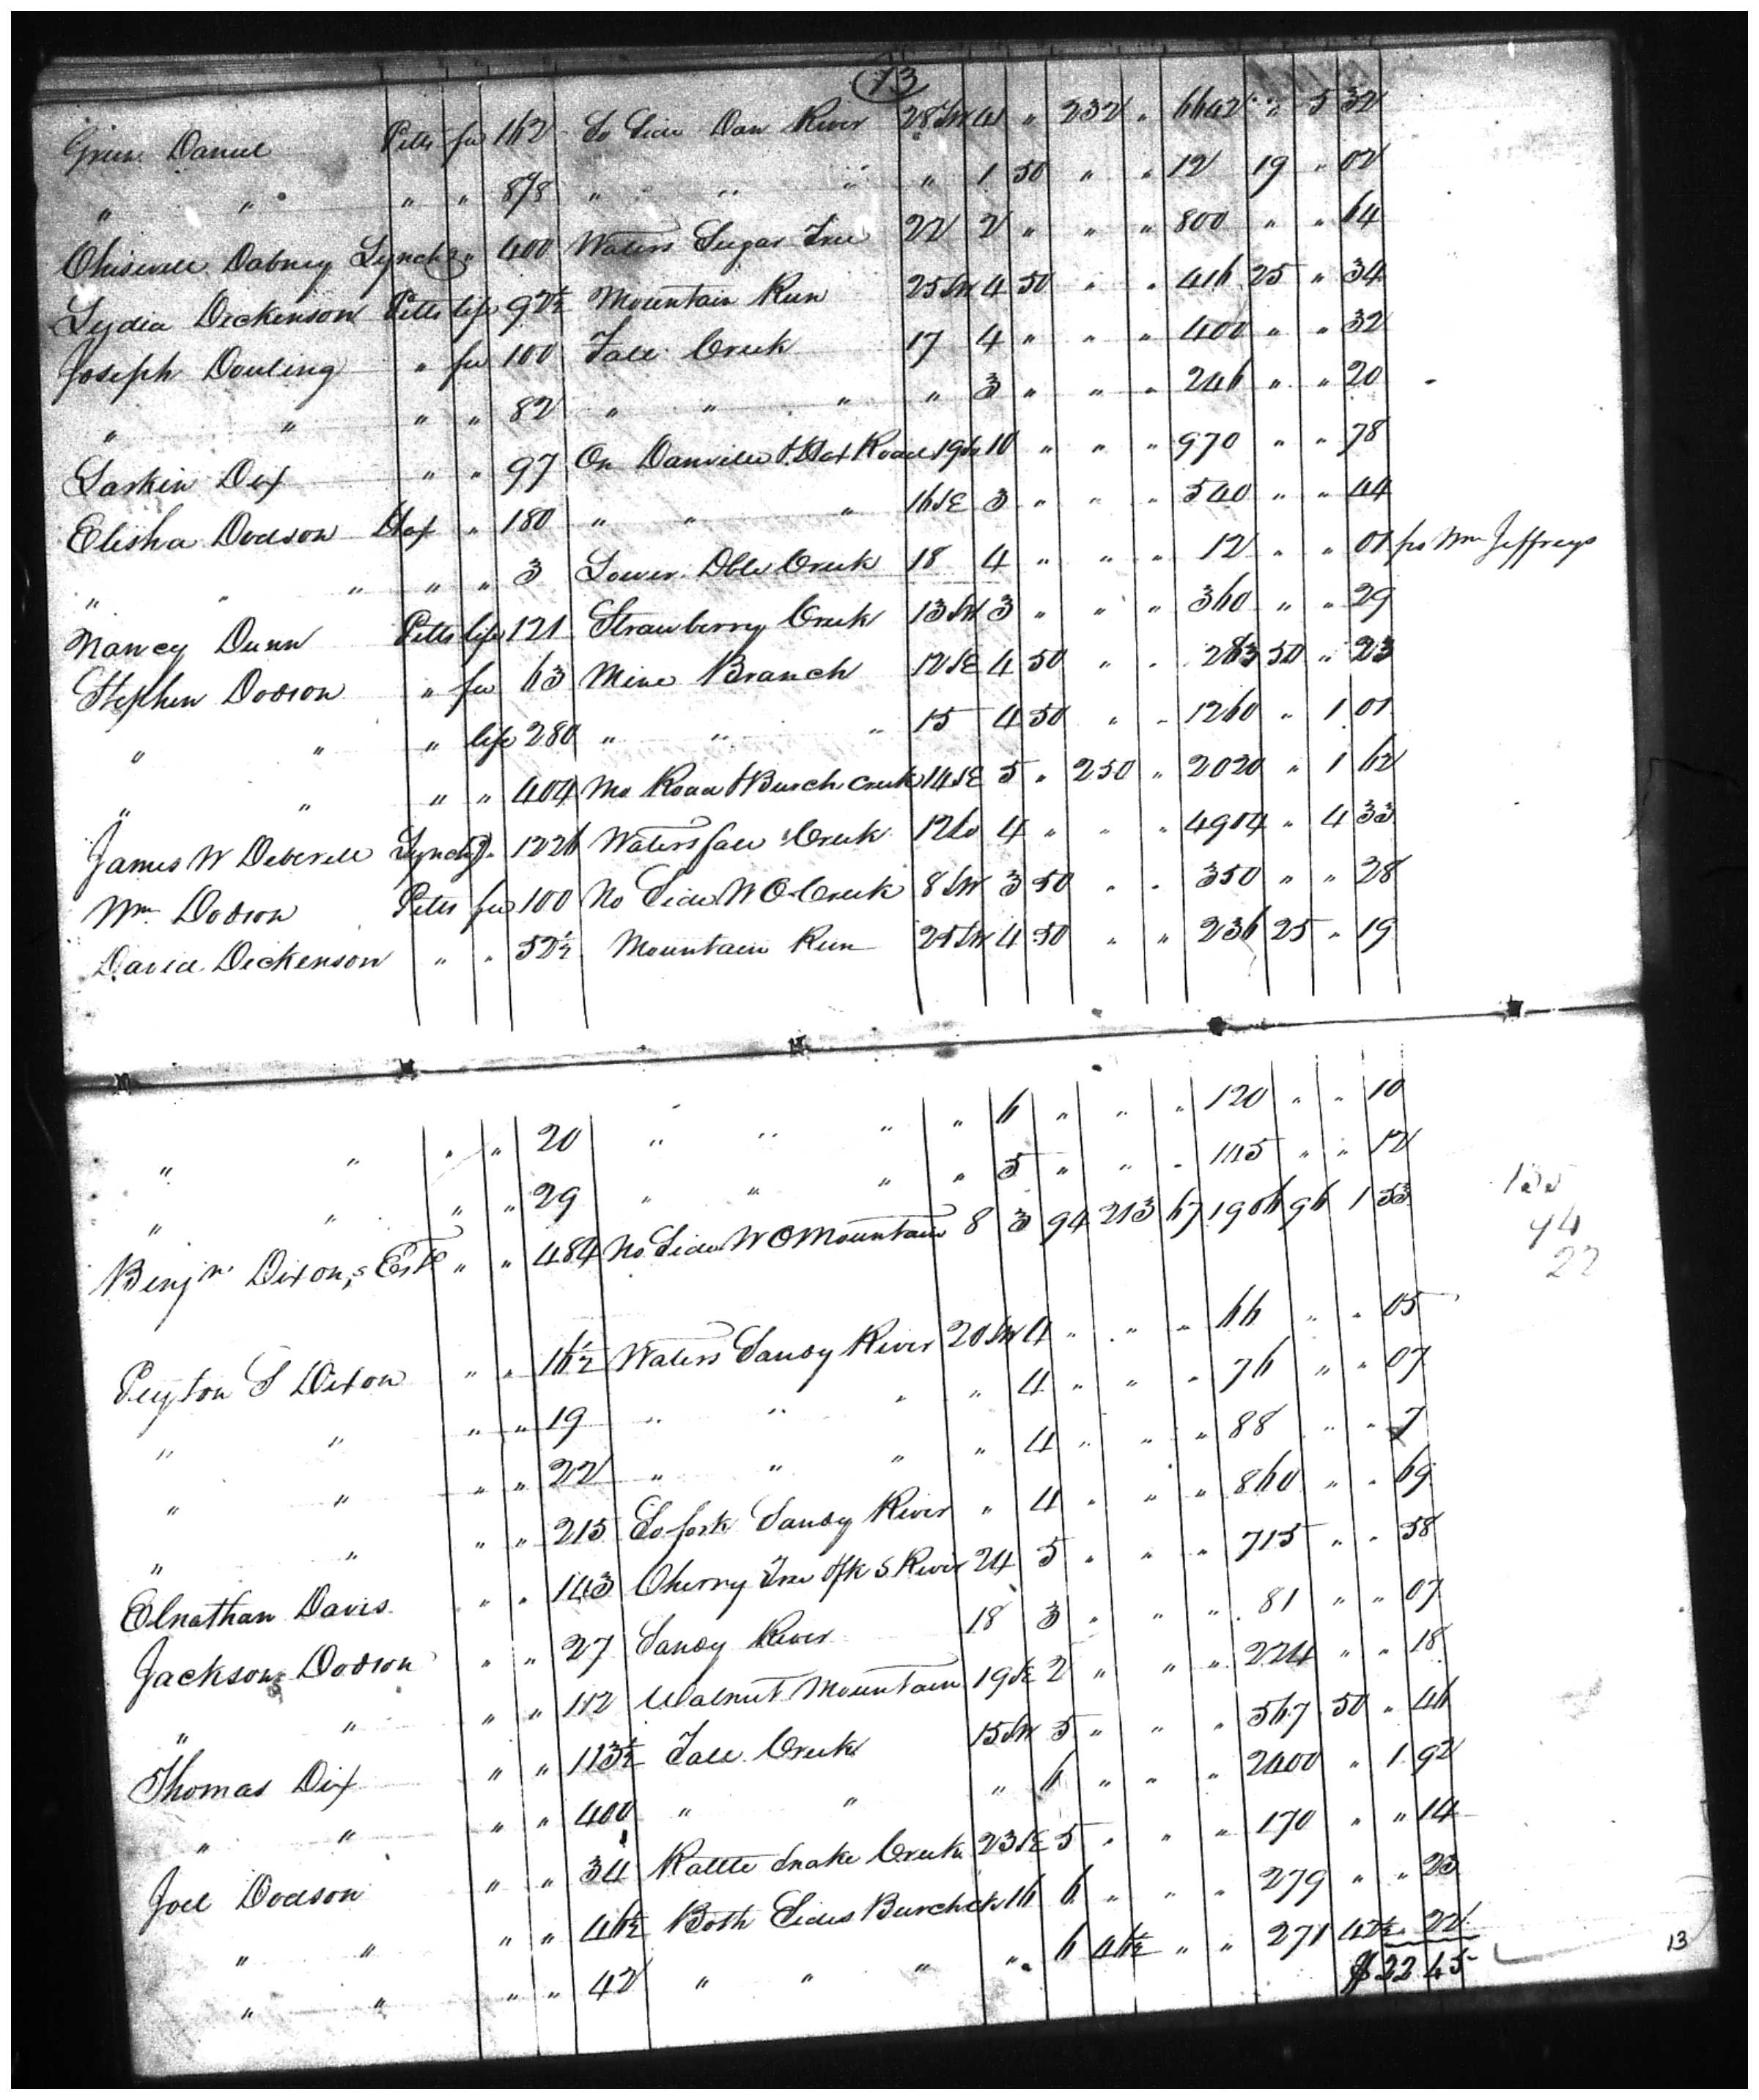 13
Green Daniel Pitts fee 162 So Side Dan River 28 SW 41 " 232 " 6642 " " 5 32
" " " " 8 7/8 " " " " 1 50 " " 12 19 " 02
Chiswell Dabney Lynchg " 400 Waters Sugar Tree 22 2 " " " 800 " " 64
Lydia Dickenson Pitts life 92½ Mountain Run 25 SW 4 50 " " 416 25 " 34
Joseph Douling " fee 100 Fall Creek 17 4 " " " 400 " " 32
" " " " 82 " " " " 3 " " " 246 " " 20
Larkin Dix " " 97 On Danville & Hax Road 19 10 " " " 970 " " 78
Elisha Dodson Hax " 180 " " " 16 SE 3 " " " 540 " " 44
" " " " " 3 Lower Dble Creek 18 4 " " " 12 " " 01 fro Wm Jeffreys
Nancy Dunn Pitts life 121 Strawberry Creek 13 SW 3 " " " 360 " " 29
Stephen Dodson " fee 63 Mine Branch 12 SE 4 50 " " 283 50 " 23
" " " life 280 " " " 15 4 50 " " 1260 " 1 01
" " " " 404 Mo Road & Burch Creek 14 SE 5 " 250 " 2020 " 1 62
James W Deverell Lynchg " 1226 Waters fall Creek 12 4 " " " 4904 " 4 33
Wm Dodson Pitts fee 100 No Side W O Creek 8 SW 3 50 " " 350 " " 28
David Dickenson " " 52½ Mountain Run 25 SW 4 50 " " 236 25 " 19
" " " " 20 " " " " 6 " " " 120 " " 10
" " " " 29 " " " " 5 " " " 145 " " 12
Benjn Dixon,s Este " " 484 No Side W O Mountain 8 3 94 213 67 1906 96 1 53
44
22
Peyton S Dixon " " 16½ Waters Sandy River 20 SW 4 " " " 66 " " 05
" " " " 19 " " " " 4 " " " 76 " " 07
" " " " 22 " " " " 4 " " " 88 " " 7
" " " " 215 So fork Sandy River " 4 " " " 860 " " 69
Elnathan Davis " " 143 Cherry Tree Ofk S River 24 5 " " " 715 " " 58
Jackson Dodson " " 27 Sandy River 18 3 " " " 81 " " 07
" " " " 112 Walnut Mountain 19 SE 2 " " " 224 " " 18
Thomas Dix " " 113½ Fall Creek 15 SW 5 " " " 567 50 " 46
" " " " 400 " " " 6 " " " 2400 " 1 92
Joel Dodson " " 34 Rattle Snake Creek 23 SE 5 " " " 170 " " 14
" " " " 46½ Both Sides Burch ck 16 6 " " " 279 " " 23
" " " " 42 " " " " 6 46½ " " 271 42½ " 22
$22 45
13